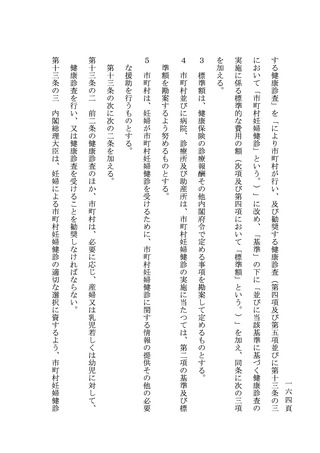 一六四頁
する健康診査」を「により市町村が行い、及び勧奨する健康診査(第四項及び第五項並びに第十三条の三
において「市町村妊婦健診」という。)」に改め、「基準」の下に「並びに当該基準に基づく健康診査の
実施に係る標準的な費用の額(次項及び第四項において「標準額」という。)」を加え、同条に次の三項
を加える。
3 標準額は、健康保険の診療報酬その他内閣府令で定める事項を勘案して定めるものとする。
4 市町村並びに病院、診療所及び助産所は、市町村妊婦健診の実施に当たつては、第二項の基準及び標
準額を勘案するよう努めるものとする。
5 市町村は、妊婦が市町村妊婦健診を受けるために、市町村妊婦健診に関する情報の提供その他の必要
な援助を行うものとする。
第十三条の次に次の二条を加える。
第十三条の二 前二条の健康診査のほか、市町村は、必要に応じ、産婦又は乳児若しくは幼児に対して、
健康診査を行い、又は健康診査を受けることを勧奨しなければならない。
第十三条の三 内閣総理大臣は、妊婦による市町村妊婦健診の適切な選択に資するよう、市町村妊婦健診